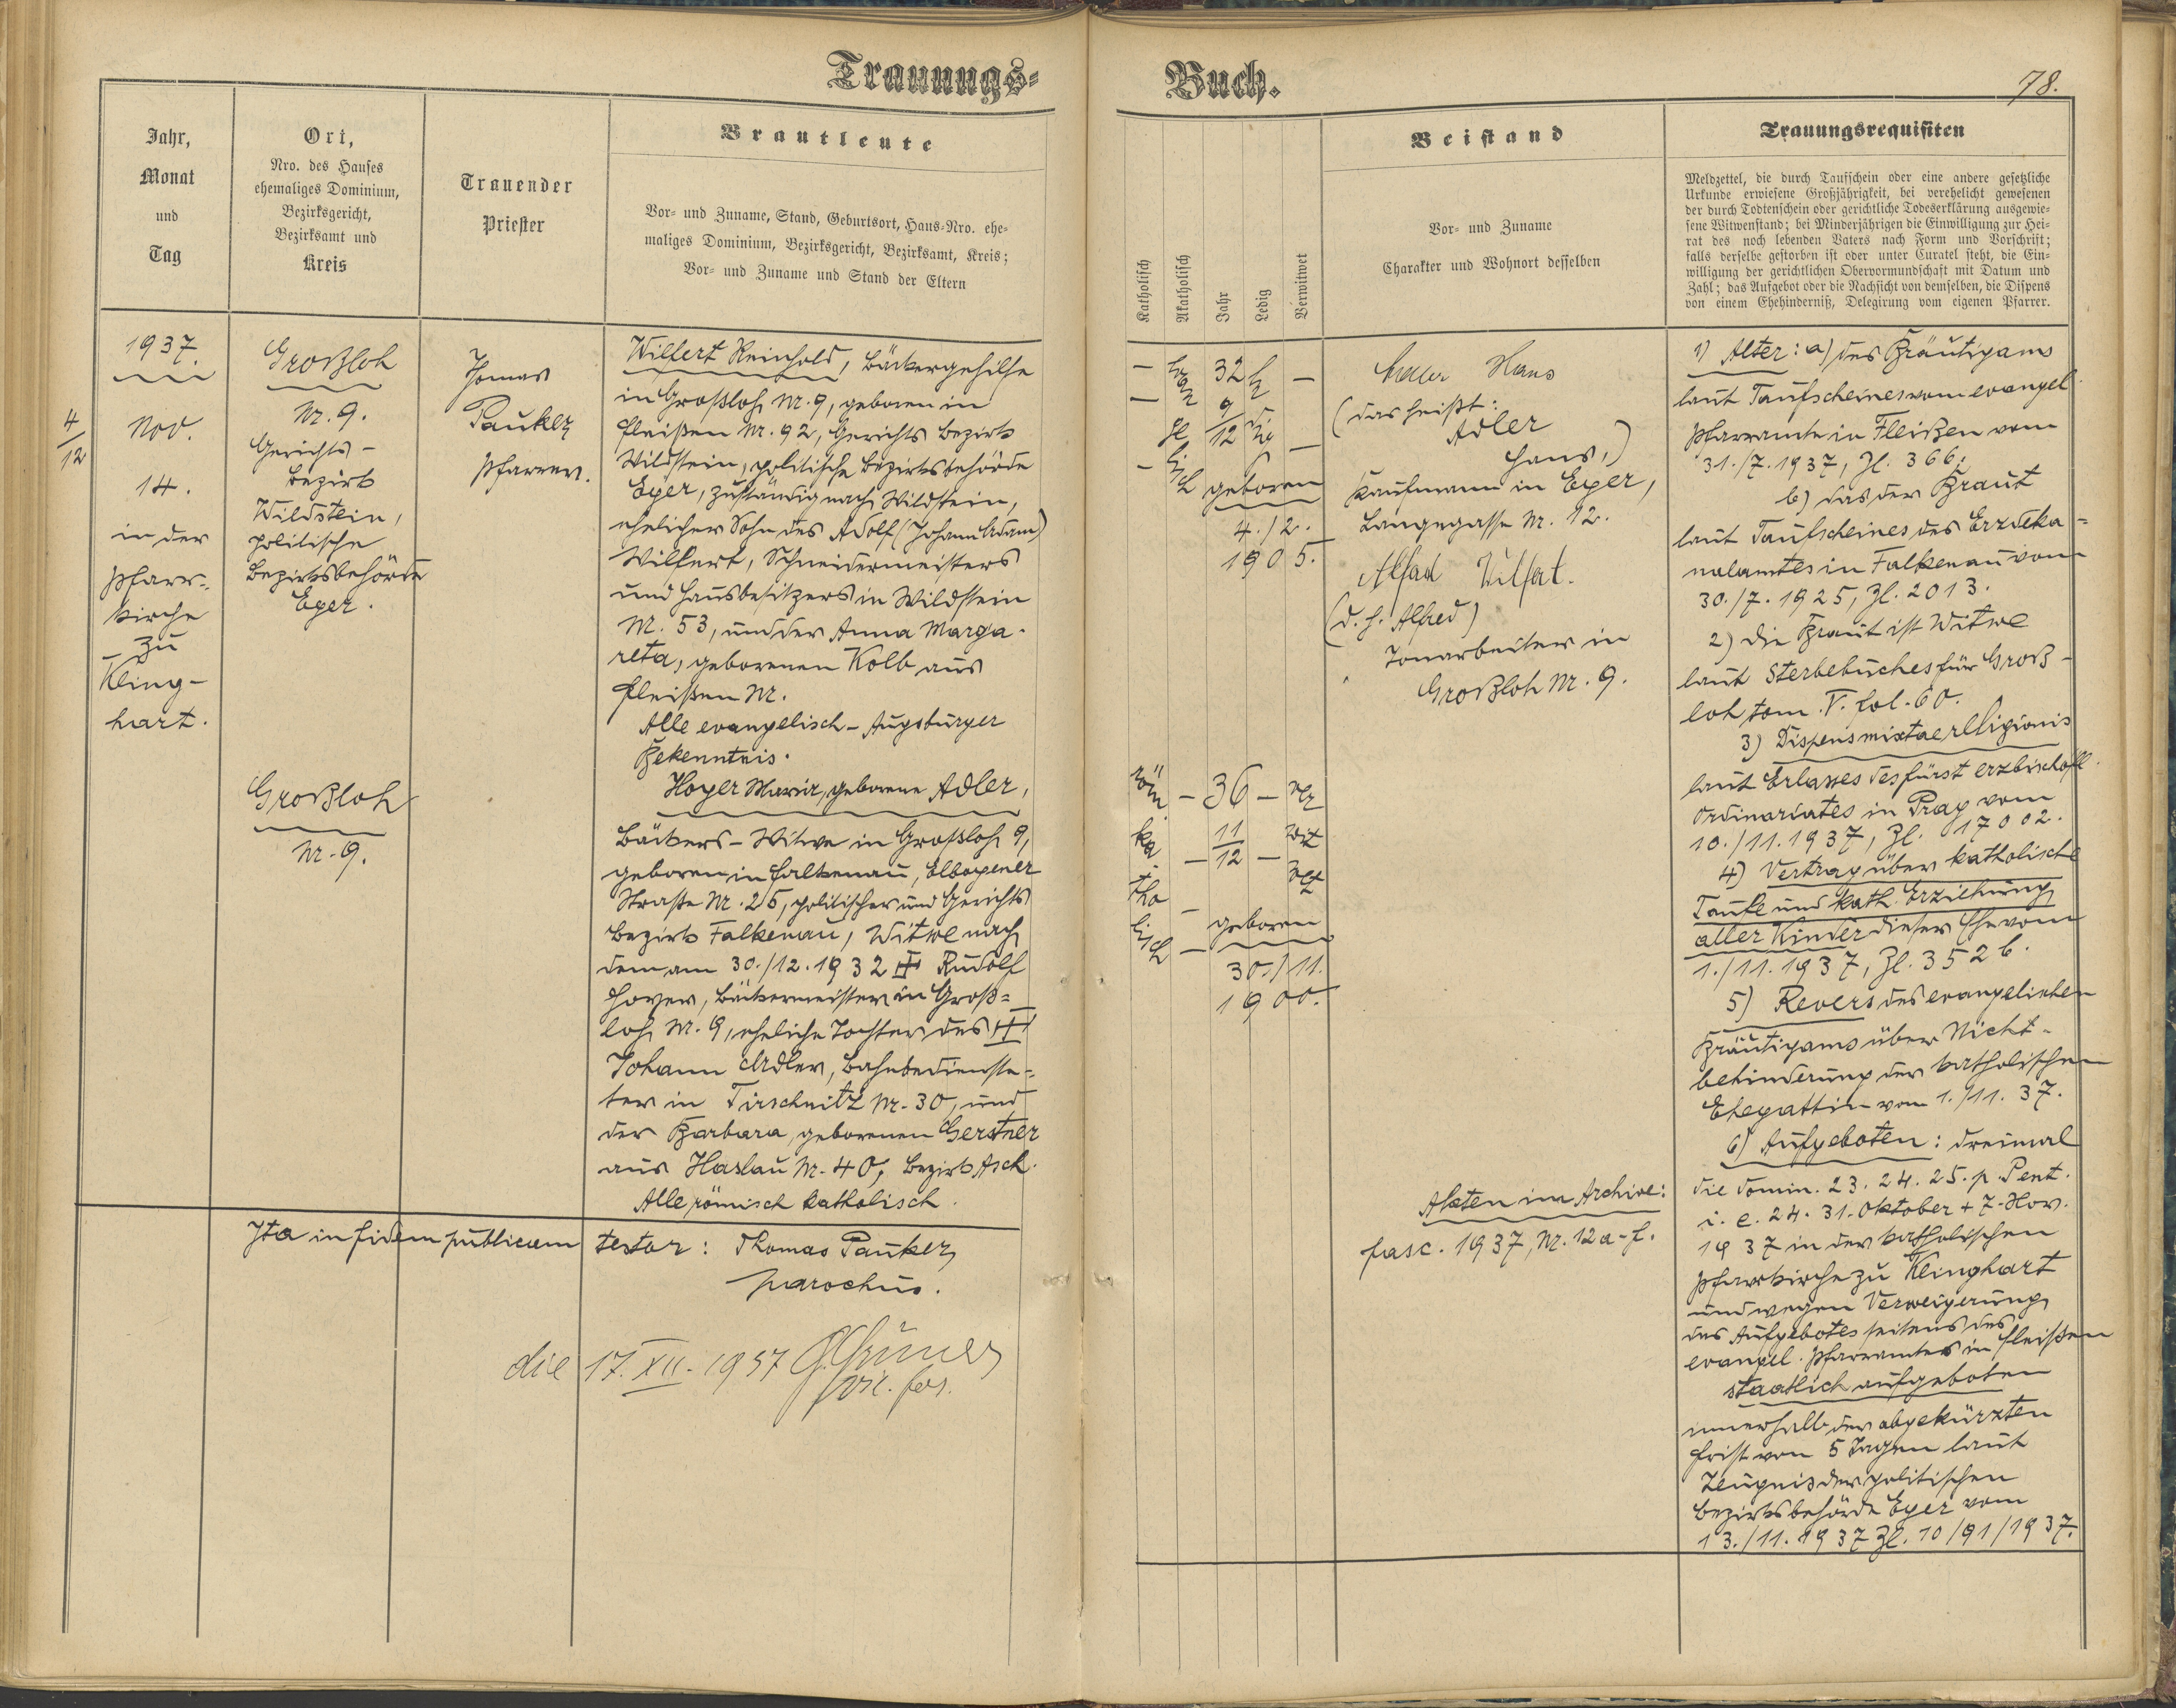 Trauungs-
Buch.
78.
Jahr,
Monat
und
Tag
Ort,
Nro. des Hauses
ehemaliges Dominium,
Bezirksgericht,
Bezirksamt und
Kreis
Trauender
Priester
Brautleute
Vor- und Zuname, Stand, Geburtsort, Haus-Nro. ehe-
maliges Dominium, Bezirksgericht, Bezirksamt, Kreis;
Vor- und Zuname und Stand der Eltern
Katholisch
Akatholisch
Jahr
Ledig
Verwitwet
Beistand
Vor- und Zuname
Charakter und Wohnort desselben
Trauungsrequisiten
Meldzettel, die durch Taufschein oder eine andere gesetzliche
Urkunde erwiesene Großjährigkeit, bei verehelicht gewesenen
der durch Todtenschein oder gerichtliche Todeserklärung ausgewie-
sene Witwenstand; bei Minderjährigen die Einwilligung zur Hei-
rat des noch lebenden Vaters nach Form und Vorschrift;
falls derselbe gestorben ist oder unter Curatel steht, die Ein-
willigung der gerichtlichen Obervormundschaft mit Datum und
Zahl; das Aufgebot oder die Nachsicht von demselben, die Dispens
von einem Ehehinderniß, Delegirung vom eigenen Pfarrer.
1937.
4/12
Nov.
14.
in der
Pfarr-
kirche
zu
Kling-
hart.
Großloh
Nr. 9.
Gerichts-
bezirk
Wildstein,
politische
Bezirksbehörde
Eger.
Thomas
Pauker
Pfarrer.
Wilfert Reinhold, Bäckergehilfe
in Großloh Nr. 9, geboren in
Fleißen Nr. 92, Gerichts Bezirk
Wildstein, politische Bezirksbehörde
Eger, zuständig nach Wildstein,
ehelicher Sohn des Adolf (Johann Adam)
Wilfert, Schneidermeisters
und Hausbesitzers in Wildstein
Nr. 53, und der Anna Marga-
reta, geborenen Kolb aus
Fleißen Nr.
Alle evangelisch-Augsburger
Bekenntnis.
Großloh
Nr. 9.
Hoyer Maria, geborene Adler,
Bäckers-Witwe in Großloh 9,
geboren in Falkenau, Elbogener
Straße Nr. 25, politischer und Gerichts
Bezirk Falkenau, Witwe nach
dem am 30./12. 1932 ‡ Rudolf
Hoyer, Bäckermeister in Groß=
loh Nr. 9, eheliche Tochter des ‡
Johann Adler, Bahnbedienste-
ter in Tirschnitz Nr. 30, und
der Barbara, geborenen Gerstner
aus Haslau Nr. 40, Bezirk Asch.
Alle römisch katholisch.
Ita in fidem publicam testor: Thomas Pauker,
parochus.
die 17. XII. 1937
vic. for.
evan
ge
lisch
32
9/12
le
dig
geboren
4./2.
1905.
röm.
ka
tho
lisch
36
11/12
ver
wit
wet
geboren
30./11.
1900.
Adler Hans
(das heißt:
Adler
Hans,)
Kaufmann in Eger,
Langegasse Nr. 12.
Alfred Wilfert.
(d. h. Alfred)
Tonarbeiter in
Großloh Nr. 9.
Akten im Archive:
fasc. 1937, Nr. 12 a-f.
1) Alter: a) des Bräutigams
laut Taufscheines vom evangel.
Pfarramte in Fleißen vom
31./7. 1937, Zl. 366;
b) das der Braut
laut Taufscheines des Erzdeka=
nalamtes in Falkenau vom
30./7. 1925, Zl. 2013.
2) Die Braut ist Witwe
laut Sterbebuches für Groß-
loh tom. V. fol. 60.
3) Dispens mixtae religionis
laut Erlasses des fürst erzbischöfl.
Ordinariates in Prag vom
10./11. 1937, Zl. 17002.
4) Vertrag über katholische
Taufe und kath. Erziehung
aller Kinder dieser Ehe vom
1./11. 1937, Zl. 352 b.
5) Revers des evangelischen
Bräutigams über Nicht-
behinderung der katholischen
Ehegattin vom 1./11. 37.
6) Aufgeboten: dreimal
die domin. 23. 24. 25. p. Pent.
i. e. 24. 31. Oktober + 7. Nov.
1937 in der katholischen
Pfarrkirche zu Klinghart
und wegen Verweigerung
des Aufgebotes seitens des
evangel. Pfarramtes in Fleißen
staatlich aufgeboten
innerhalb der abgekürzten
Frist von 5 Tagen laut
Zeugnis der politischen
Bezirksbehörde Eger vom
13./11. 1937 Zl. 10/91/1937.